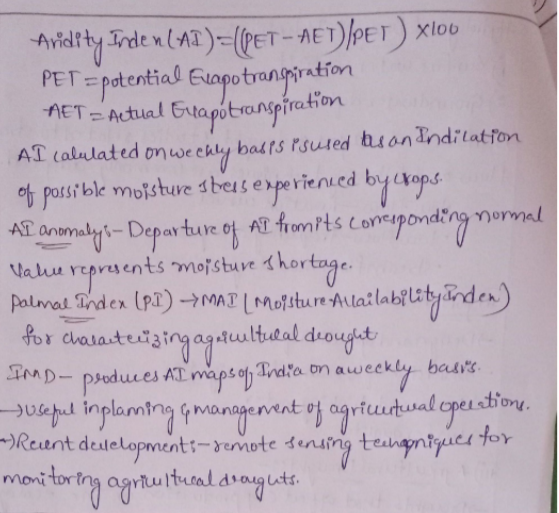 Aridity Index (AI) = ((PET - AET)/PET) X100
PET = potential Evapotranspiration
AET = Actual Evapotranspiration
AI calulated on weekly basis is used as an Indication
of possible moisture stress experienced by crops.
AI anomaly:- Departure of AI from its corresponding normal
Value represents moisture shortage.
Palmal Index (PI) → MAI (Moisture Availability Index)
for characterizing agricultural drought
IMD - produces AI maps of India on a weekly basis.
→ Useful in planning & management of agricultural operations.
→ Recent developments:- remote sensing techniques for
monitoring agricultural draughts.